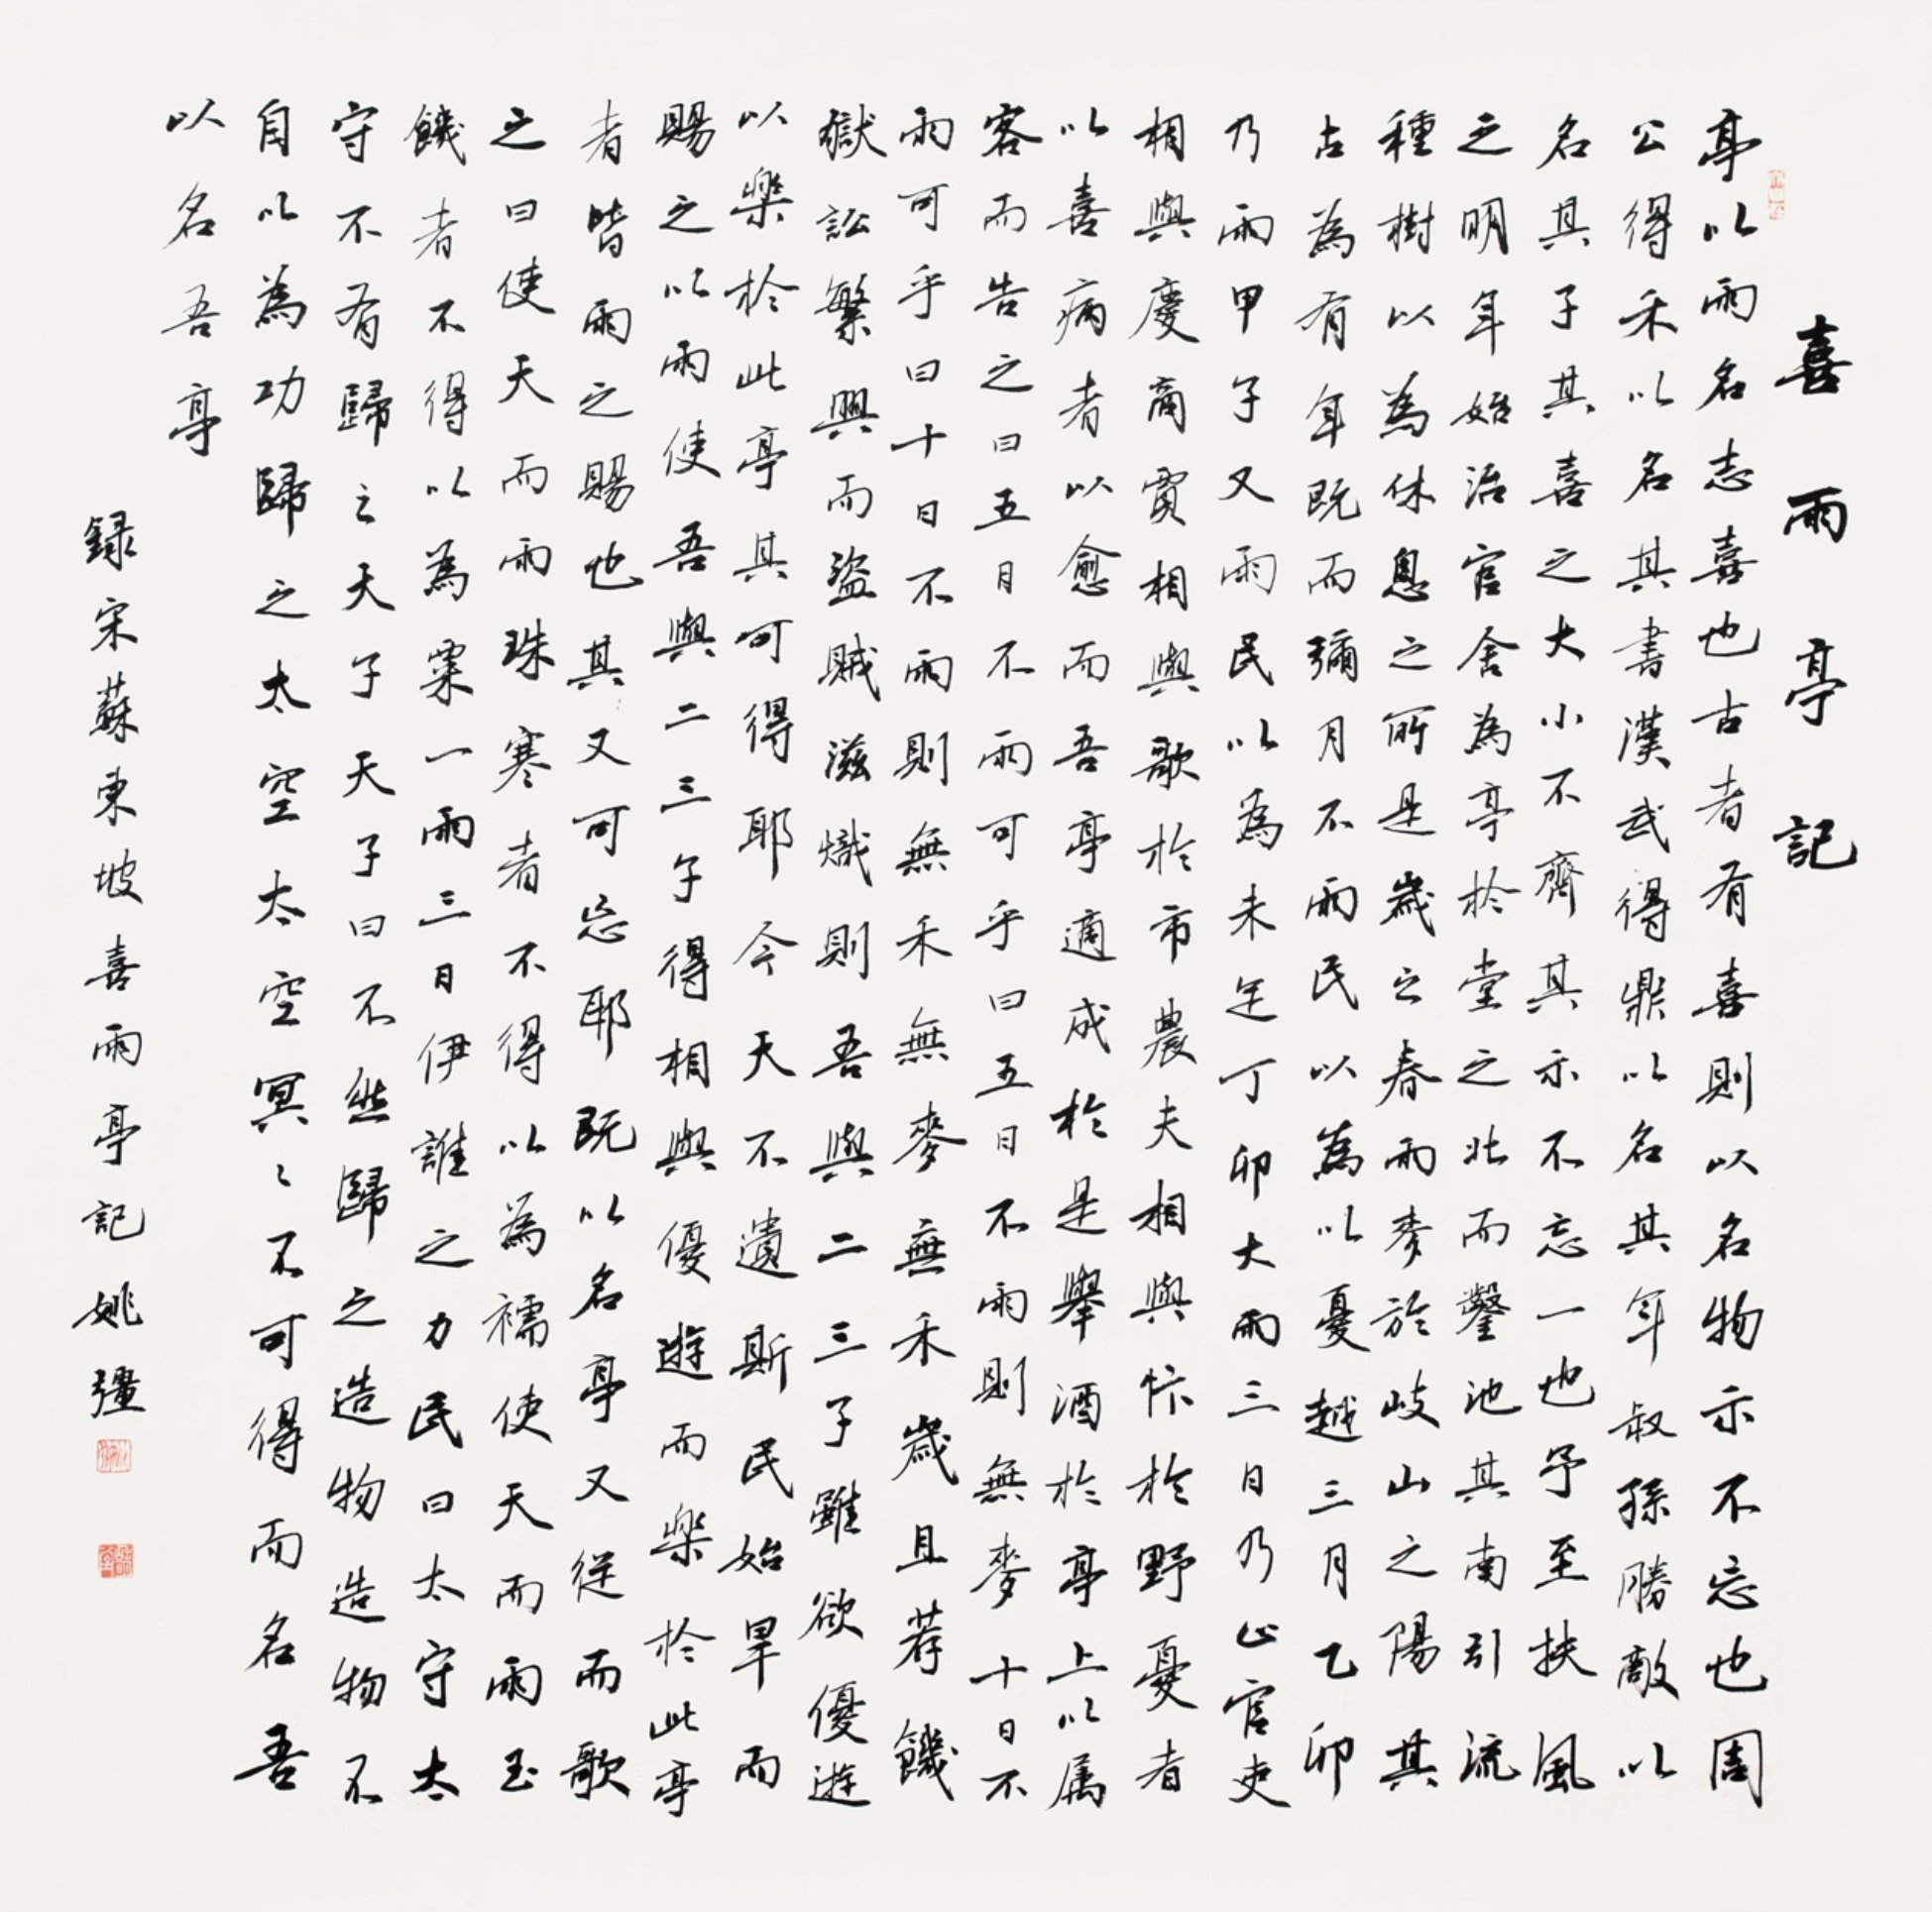 喜雨亭記
亭以雨名志喜也古者有喜則以名物示不忘也周
公得禾以名其書漢武得鼎以名其年叔孫勝敵以
名其子其喜之大小不齊其示不忘一也予至扶風
之明年始治官舍為亭於堂之北而鑿池其南引流
種樹以為休息之所是歲之春雨麥於岐山之陽其
占為有年既而彌月不雨民以為以憂越三月乙卯
乃雨甲子又雨民以為未足丁卯大雨三日乃止官吏
相與慶商賈相與歌於市農夫相與忭於野憂者
以喜病者以愈而吾亭適成於是舉酒於亭上以属
客而告之曰五日不雨可乎曰五日不雨則無麥十日不
雨可乎曰十日不雨則無禾無麥無禾歲且荐饑
獄訟繁興而盜賊滋熾則吾與二三子雖欲優遊
以樂於此亭其可得耶今天不遺斯民始旱而
賜之以雨使吾與二三子得相與優遊而樂於此亭
者皆雨之賜也其又可忘耶既以名亭又從而歌
之曰使天而雨珠寒者不得以為襦使天而雨玉
饑者不得以為粟一雨三日伊誰之力民曰太守太
守不有歸之天子天子曰不然歸之造物造物不
自以為功歸之太空太空冥々不可得而名吾
以名吾亭
録宋蘇東坡喜雨亭記姚疆